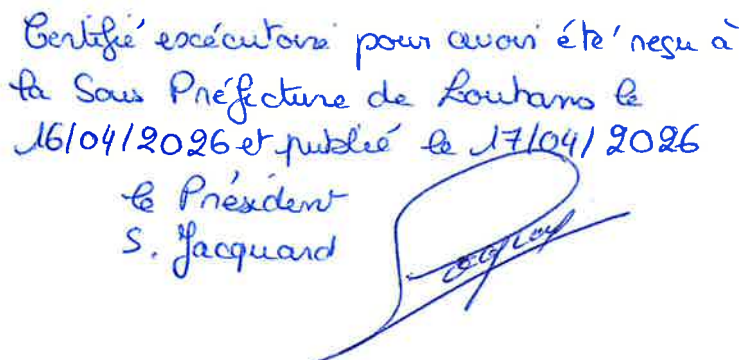 Certifié exécutoire pour avoir été reçu à
la Sous Préfecture de Louhans le
16/04/2026 et publié le 17/04/2026
le Président
S. Jacquard